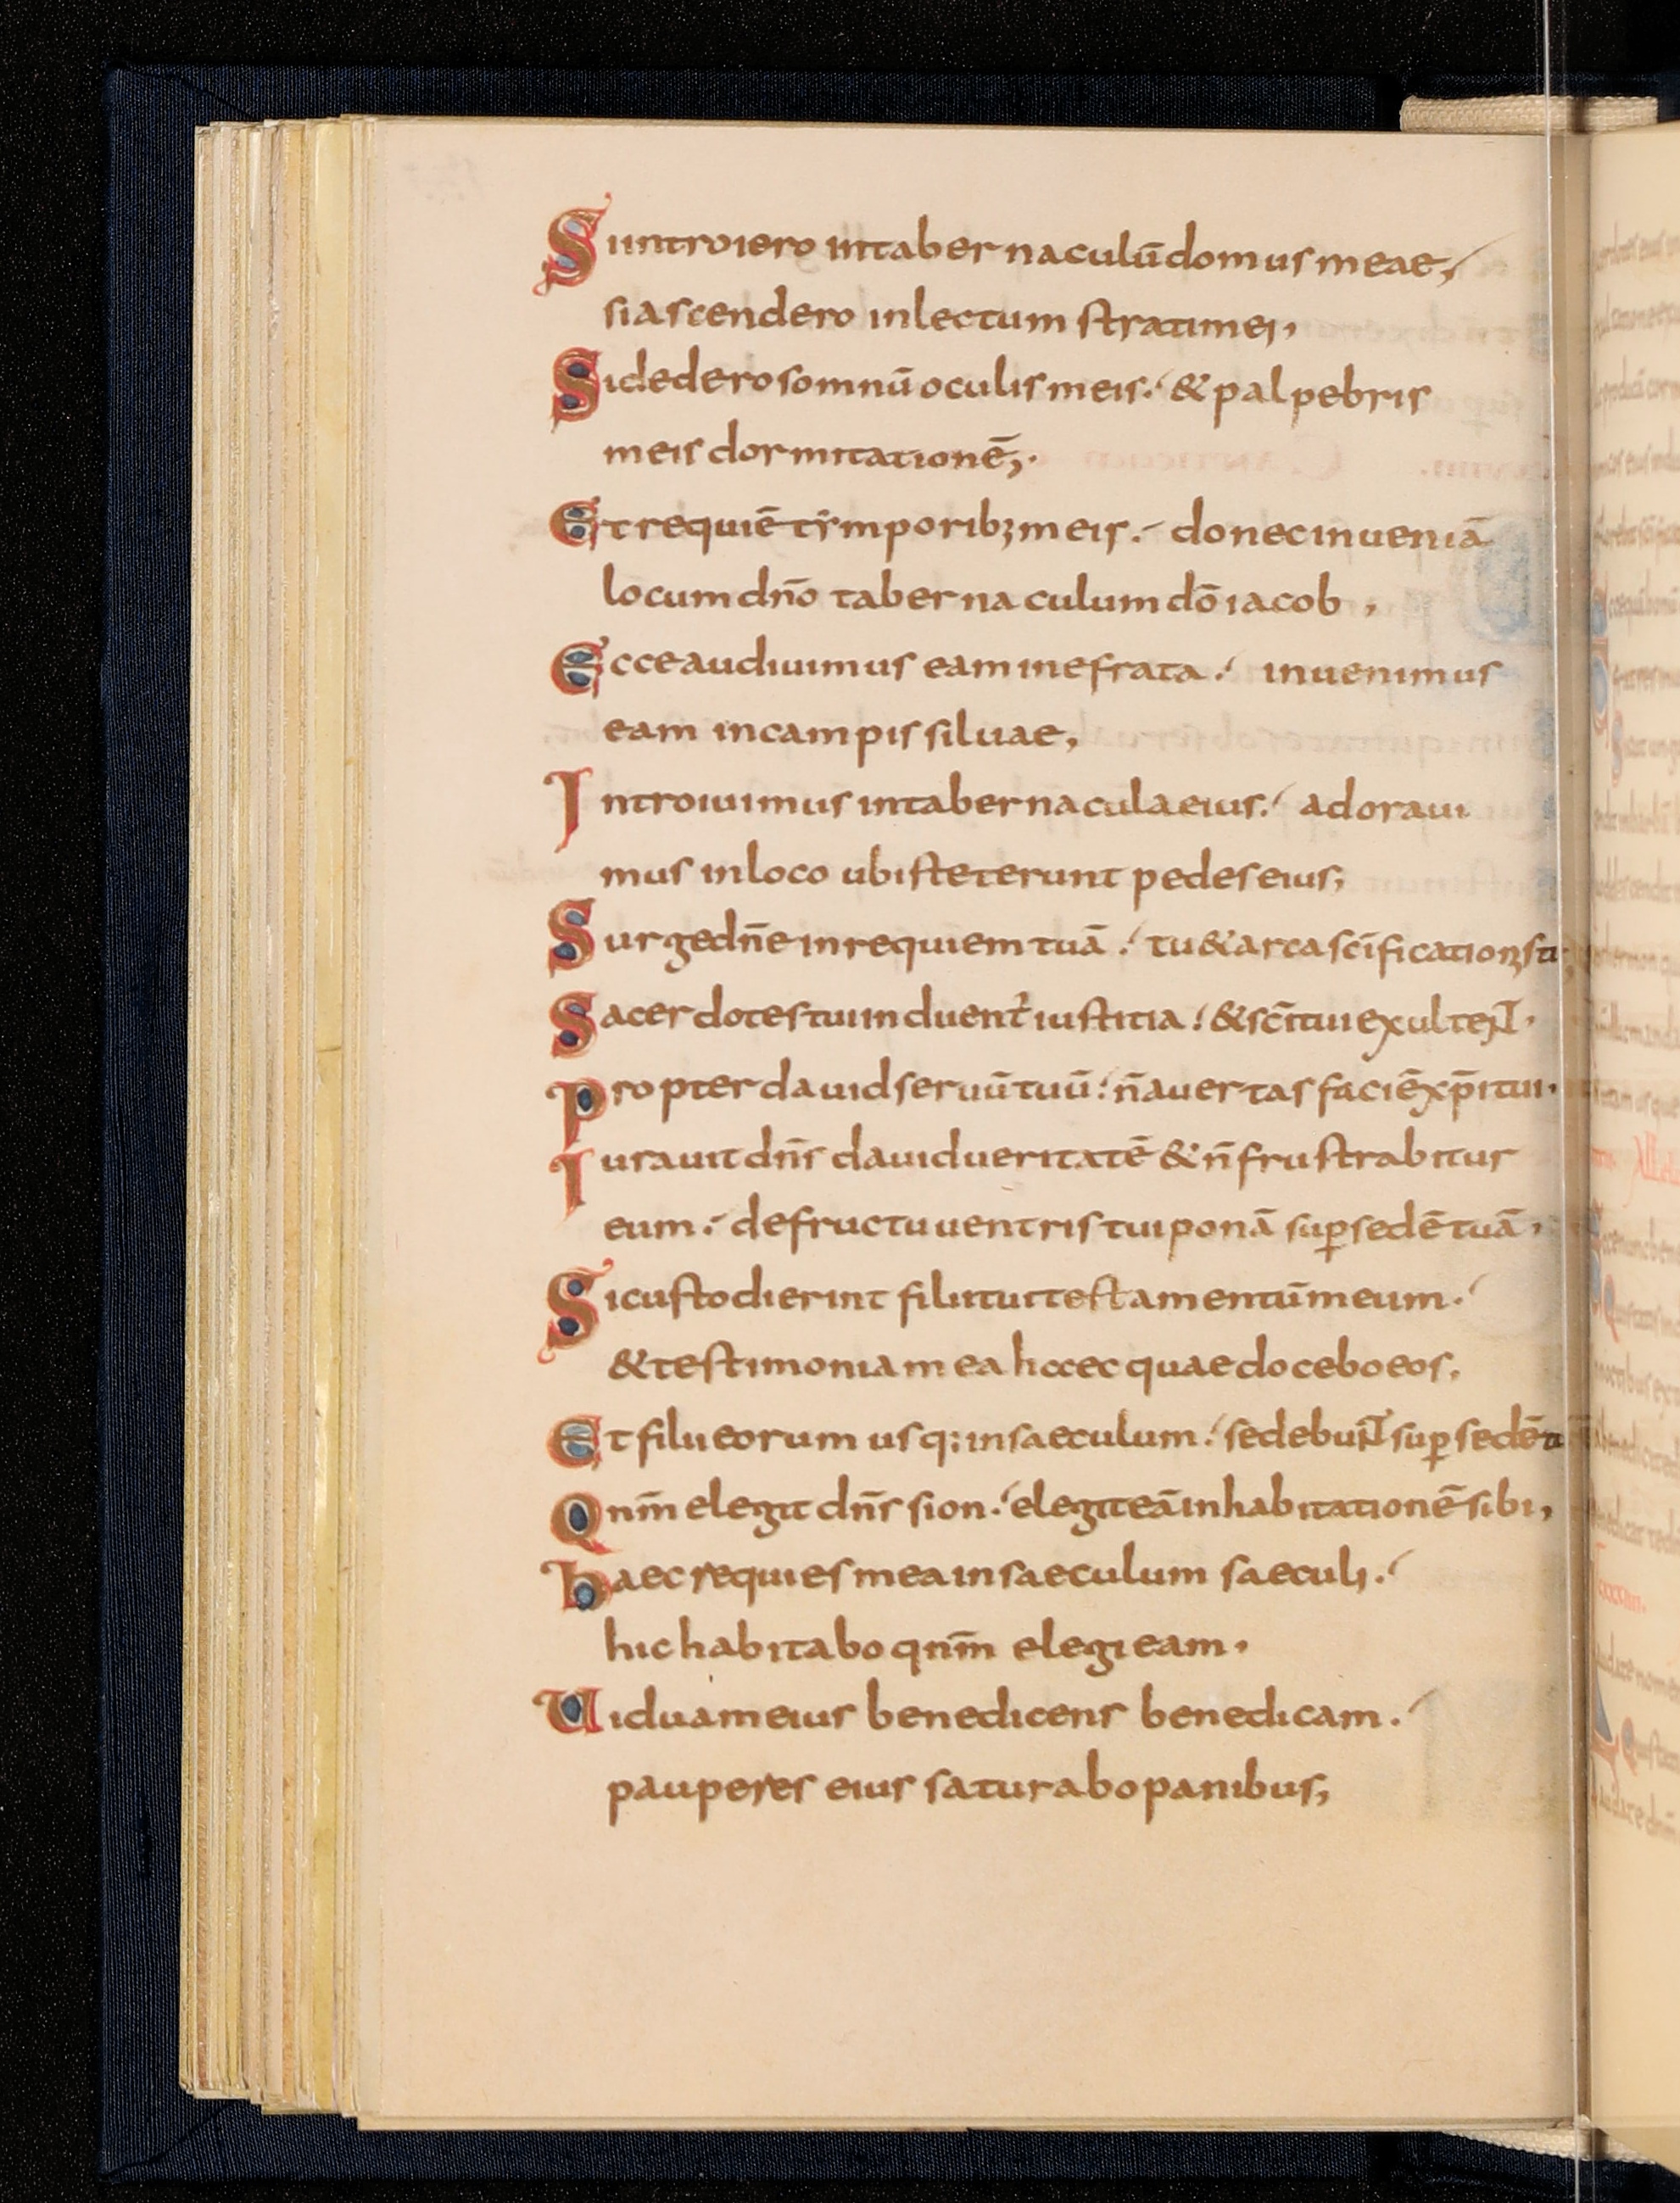 Si introiero in tabernaculū domus meae,
si ascendero in lectum strati mei,
Si dedero somnū oculis meis. & palpebris
meis dormitationē,
Et requiē tẏmporib; meis. donec inueniā
locum dn̄o tabernaculum dō iacob,
Ecce audiuimus eam in efrata. inuenimus
eam in campis siluae,
Introiuimus in tabernacula eius. adoraui
mus in loco ubi steterunt pedes eius,
Surge dn̄e in requiem tuā. tu & arca scīficationis
Sacerdotes tui induent iustitia. & sc̄i tui exultent.
Propter dauid seruū tuū. n̄ auertas faciē xp̄i tui.
Iurauit dn̄s dauid ueritatē & n̄ frustrabitur
eum. de fructu uentris tui ponā sup̱ sedē tuā.
Si custodierint filii tui testamentū meum.
& testimonia mea haec quae docebo eos.
Et filii eorum usq; in saeculum. sedebunt sup̱ sedē
Qnm̄ elegit dn̄s sion. elegit eā in habitationē sibi,
Haec requies mea in saeculum saeculi.
hic habitabo qnm̄ elegi eam.
Uiduam eius benedicens benedicam.
pauperes eius saturabo panibus,